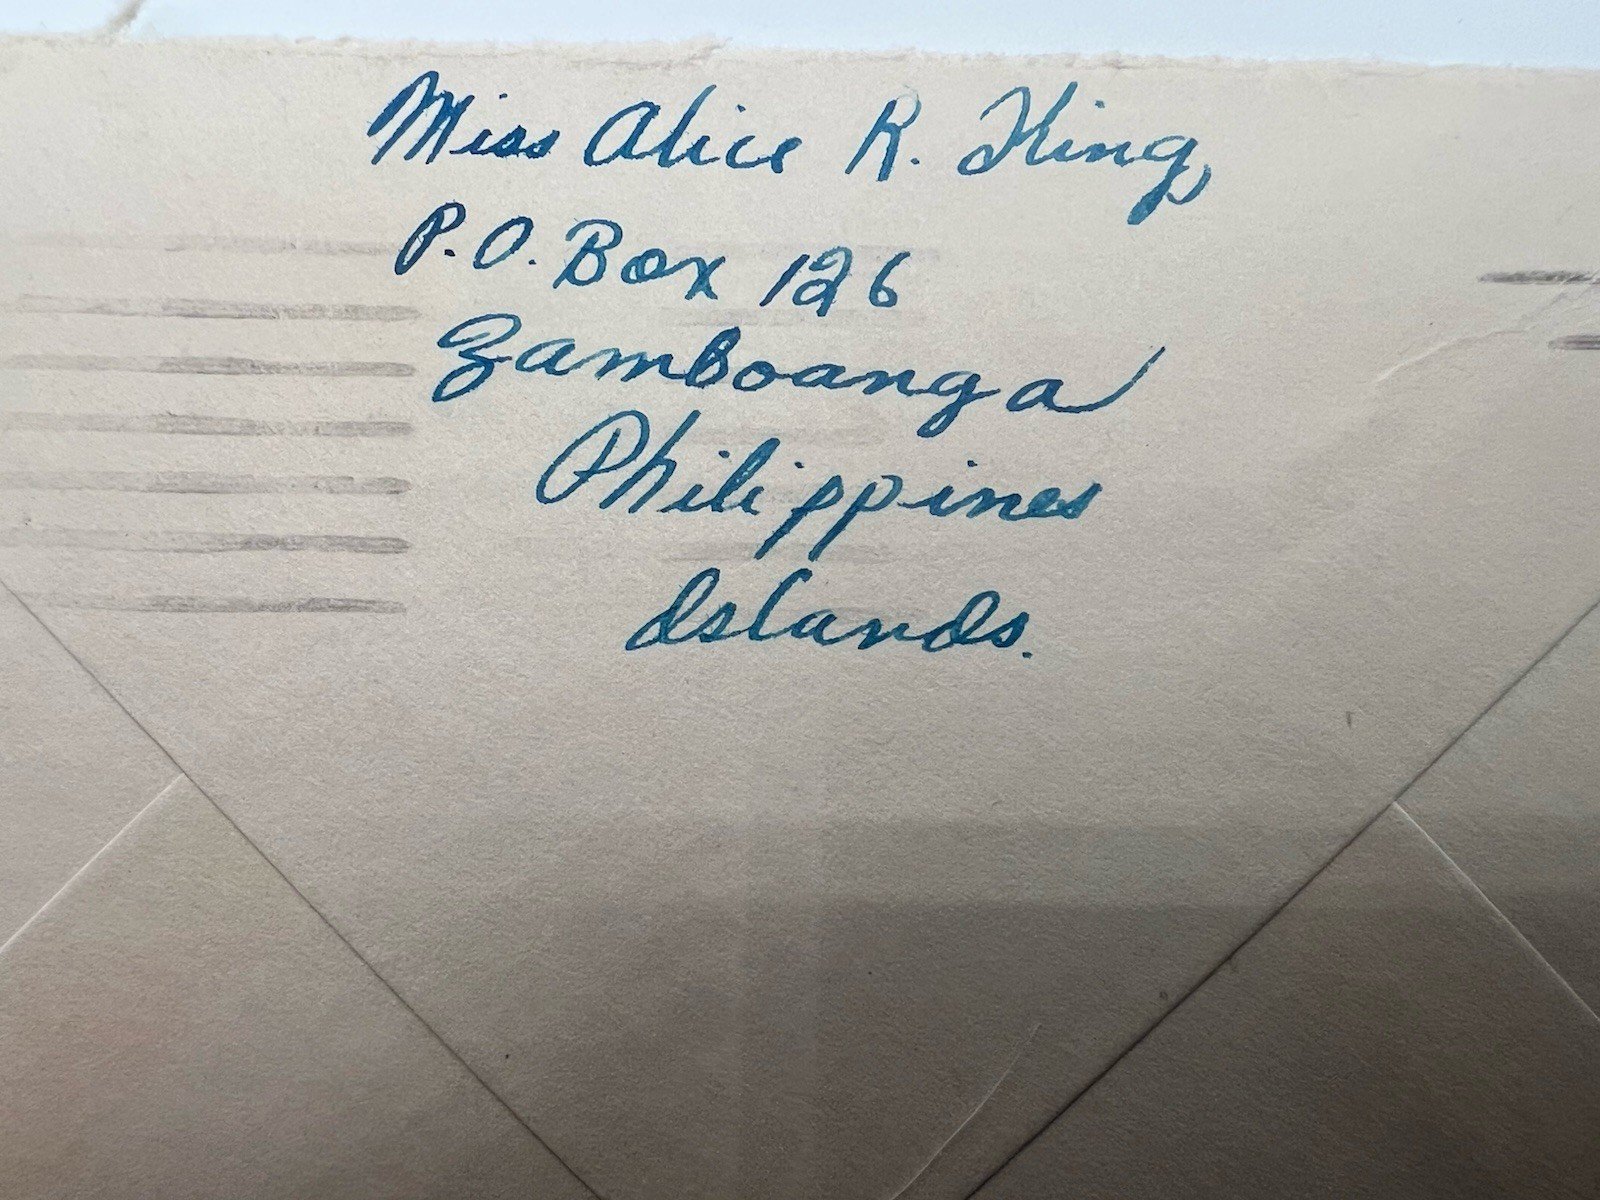 Miss Alice R. King,
P.O. Box 126
Zamboanga
Philippines
Islands.